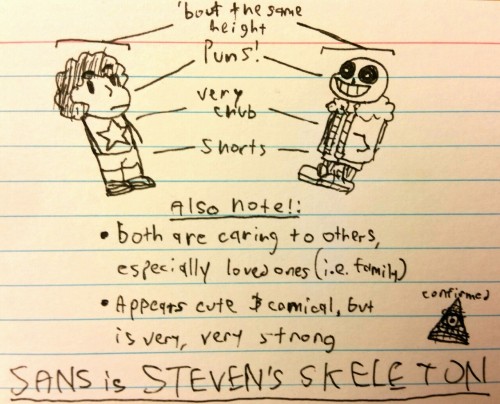 'bout the same
height
Puns!
very
chub
Shorts
Also note!:
• both are caring to others,
especially loved ones (i.e. family)
• Appears cute & comical, but
is very, very strong
confirmed
SANS is STEVEN'S SKELETON